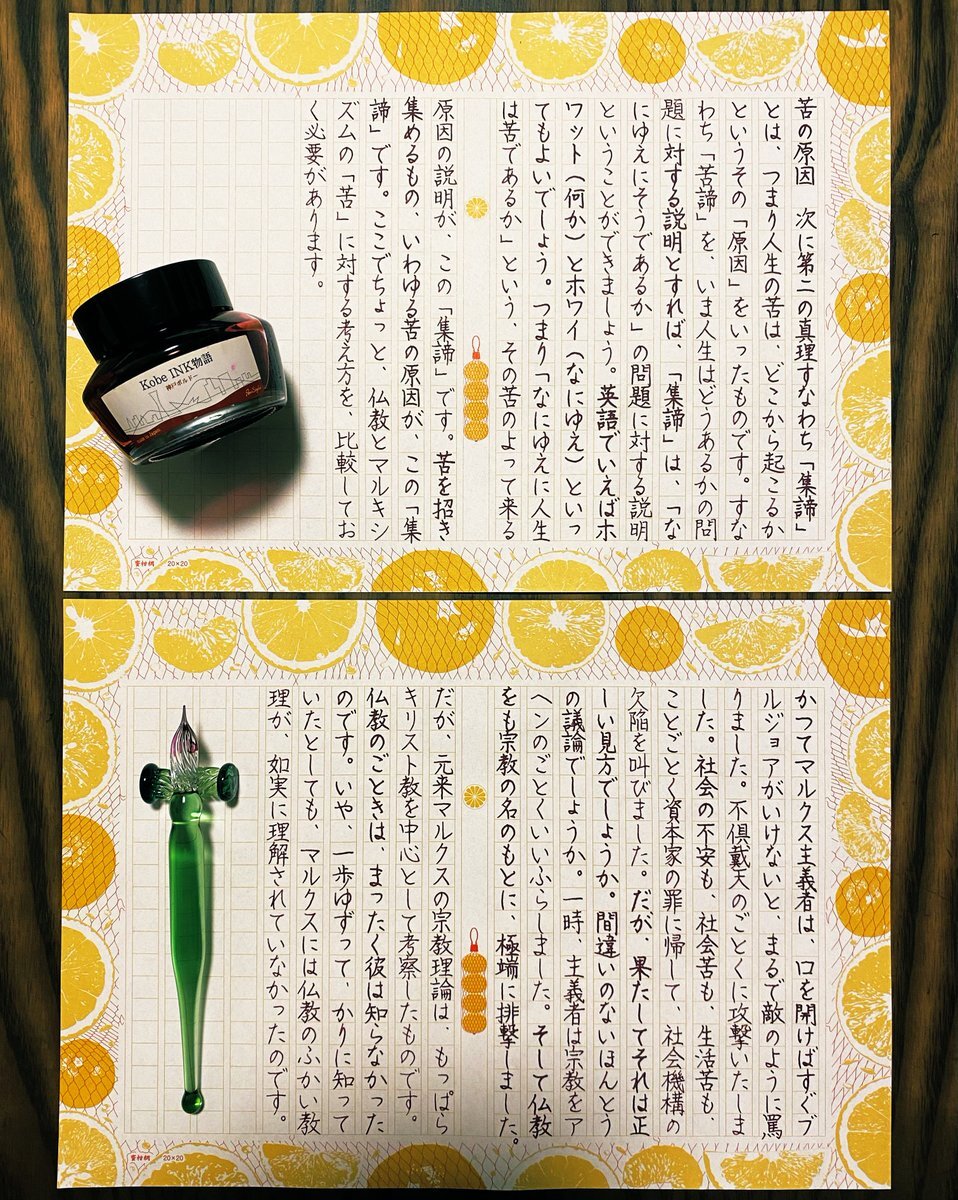 苦の原因　次に第二の真理すなわち「集諦」
とは、つまり人生の苦は、どこから起こるか
というその「原因」をいったものです。すな
わち「苦諦」を、いま人生はどうあるかの問
題に対する説明とすれば、「集諦」は、「な
にゆえにそうであるか」の問題に対する説明
ということができましょう。英語でいえばホ
ワット（何か）とホワイ（なにゆえ）といっ
てもよいでしょう。つまり「なにゆえに人生
は苦であるか」という、その苦のよって来る
原因の説明が、この「集諦」です。苦を招き
集めるもの、いわゆる苦の原因が、この「集
諦」です。ここでちょっと、仏教とマルキシ
ズムの「苦」に対する考え方を、比較してお
く必要があります。
Kobe INK物語
神戸ボルドー
蜜柑網 20×20
かつてマルクス主義者は、口を開けばすぐブ
ルジョアがいけないと、まるで敵のように罵
りました。不倶戴天のごとくに攻撃いたしま
した。社会の不安も、社会苦も、生活苦も、
ことごとく資本家の罪に帰して、社会機構の
欠陥を叫びました。だが、果たしてそれは正
しい見方でしょうか。間違いのないほんとう
の議論でしょうか。一時、主義者は宗教をア
ヘンのごとくいいふらしました。そして仏教
をも宗教の名のもとに、極端に排撃しました。
だが、元来マルクスの宗教理論は、もっぱら
キリスト教を中心として考察したものです。
仏教のごときは、まったく彼は知らなかった
のです。いや、一歩ゆずって、かりに知って
いたとしても、マルクスには仏教のふかい教
理が、如実に理解されていなかったのです。
蜜柑網 20×20